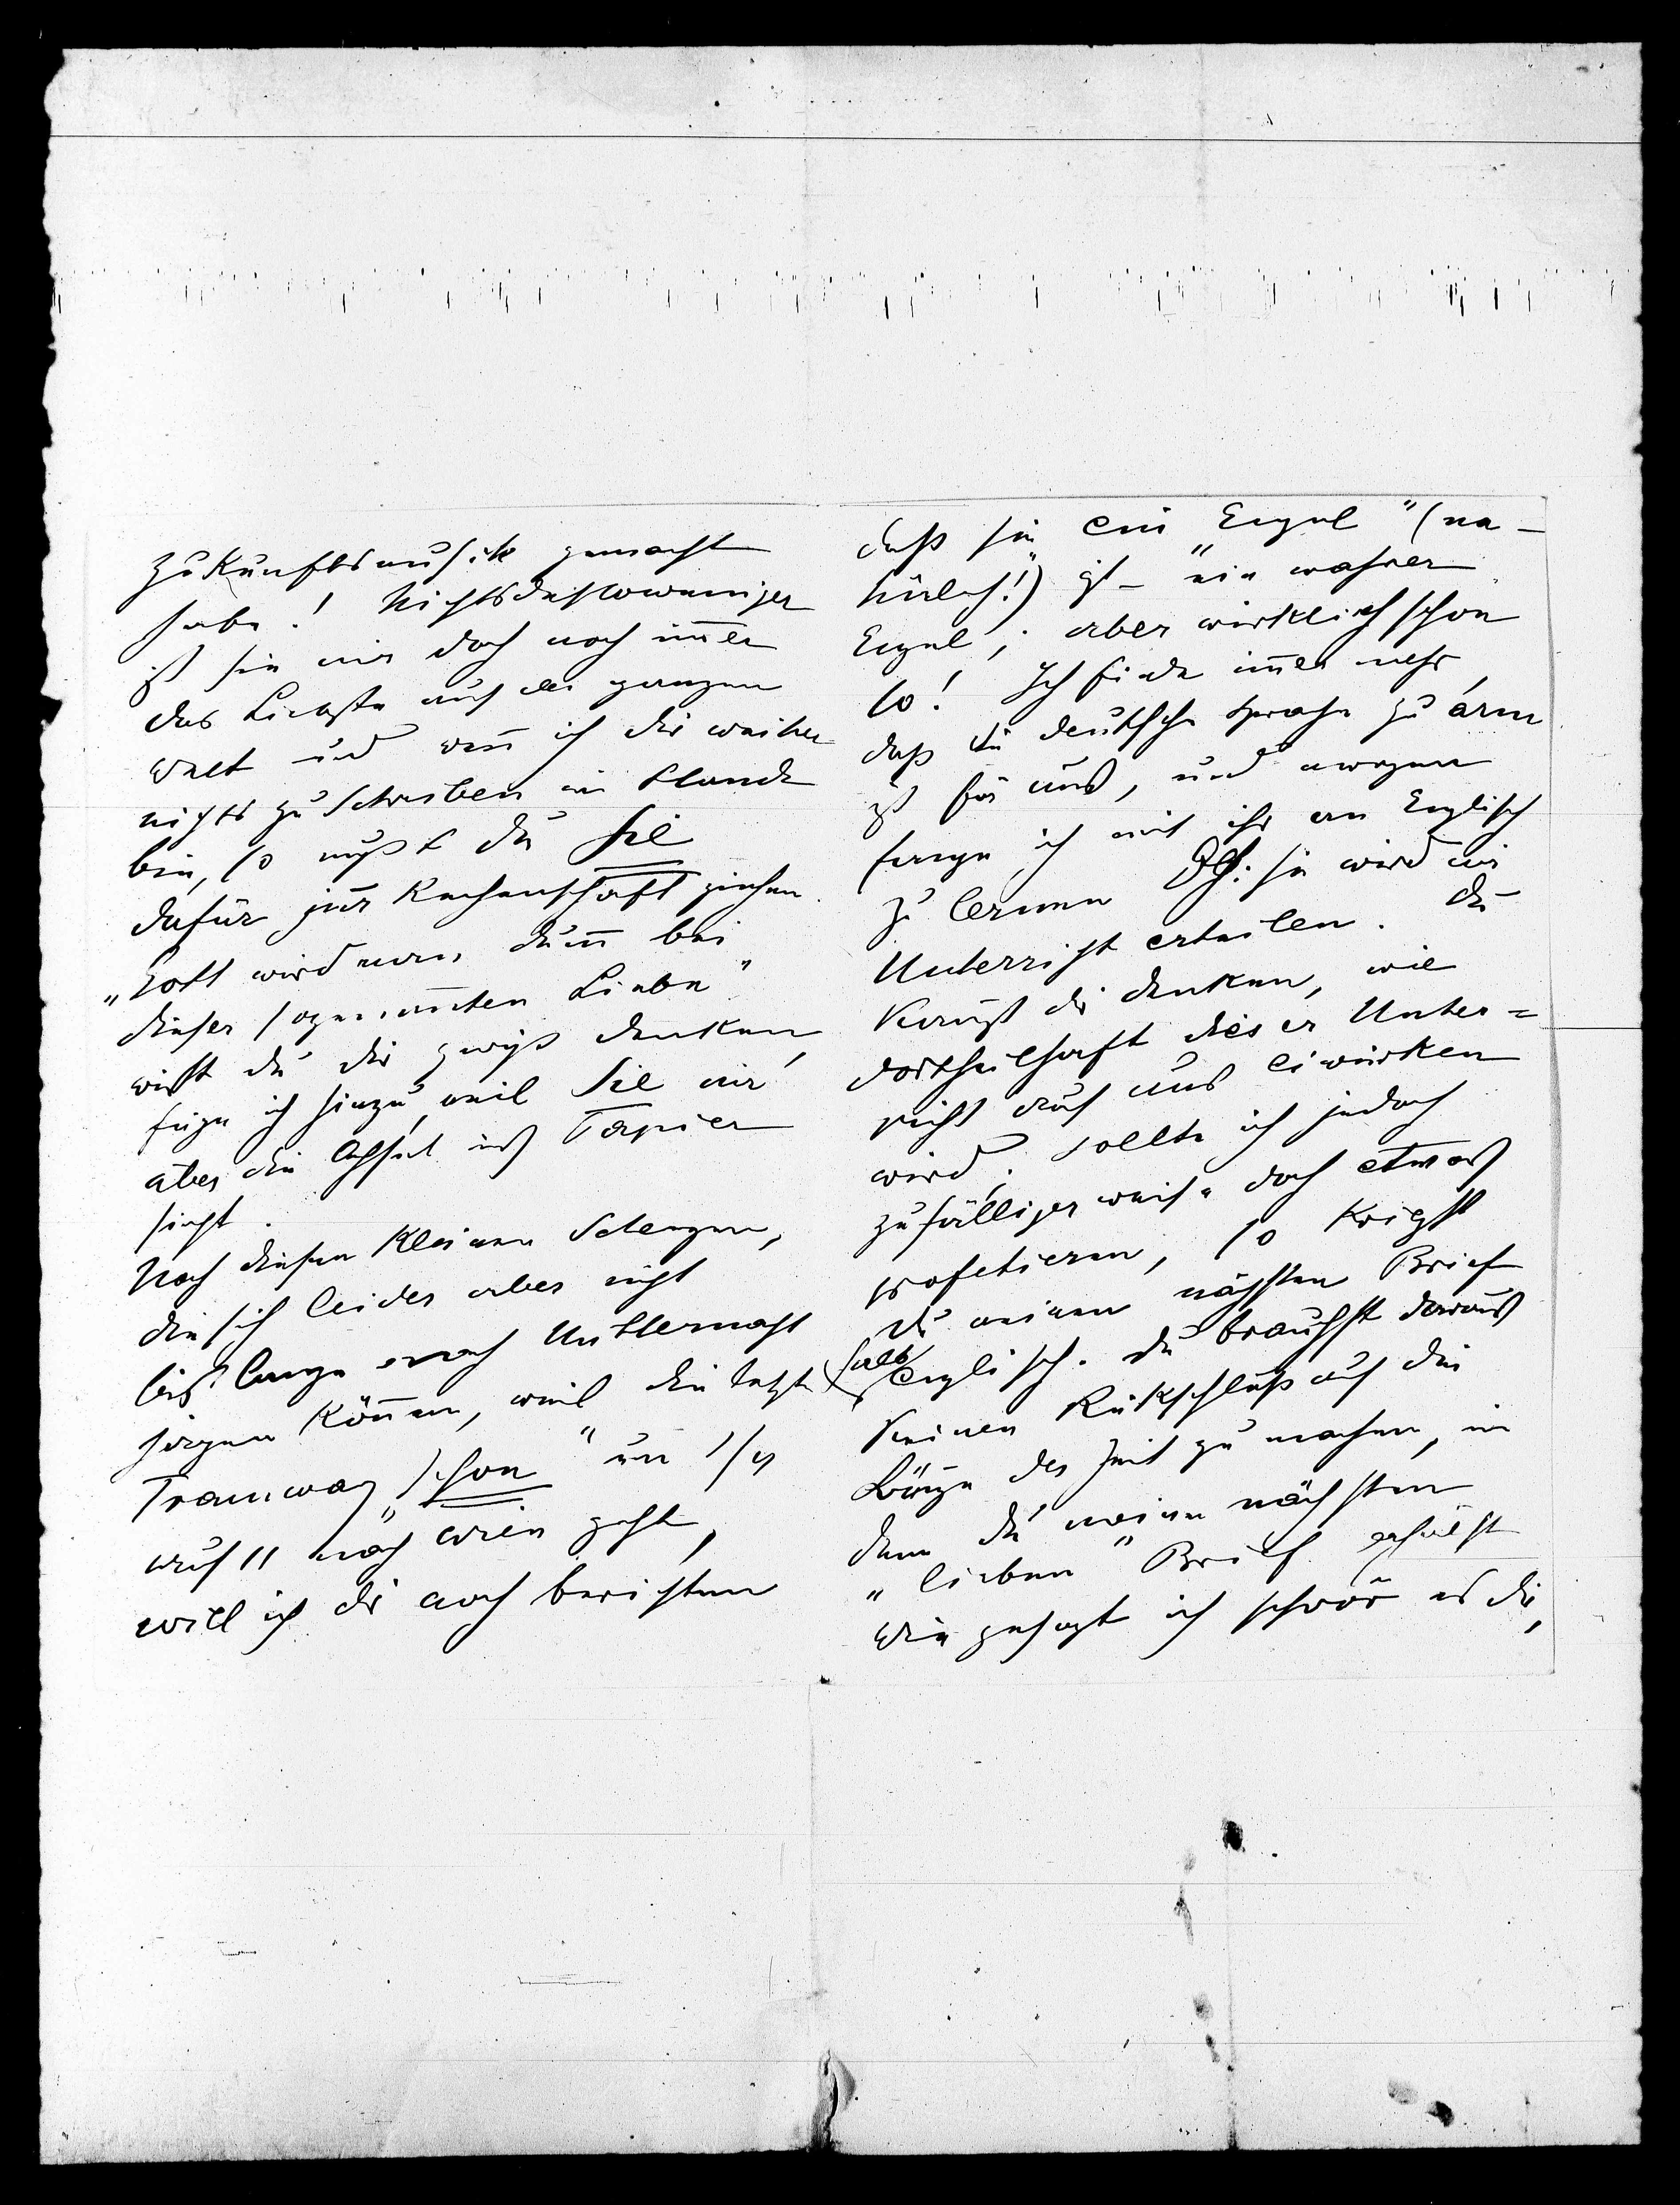 Zukunftsmusik gemacht
habe! Nichtsdestoweniger
ist sie mir doch noch im̄er
das Liebste auf der ganzen
Welt und wen̄ ich dir weiter
nichts zu schreiben im Stande
bin, so mußt du Sie
dafür zur Rechenschaft ziehen.
„Gott wird man dum̄ bei
dieser sogenan̄ten Liebe"
wirst du dir gewiß denken,
füge ich hinzu, weil Sie mir
aber die Achsel ins Papier
sieht.
Nach diesen kleinen Scherzen,
die sich leider aber nicht
bis lange nach Mitternacht
können, weil die letzte
Tramway „schon" um 1/4
auf 11 nach Wien geht,
will ich dir auch berichten
daß sie ein Engel" (na-
türlich!) ist – "ein wahrer
Engel"; aber wirklich schon
so! Ich finde im̄er mehr,
daß die deutsche Sprache zu arm
ist für uns, und morgen
fange ich mit ihr an Englisch
zu lernen Dh: sie wird mir
Unterricht erteilen. Du
kan̄st dir denken, wie
vortheilhaft dieser Unter=
richt auf uns einwirken
wird. Sollte ich jedoch
zufälligerweise doch etwas
profetieren, so kriegst
du meinen nächsten Brief
halb englisch. Du brauchst daraus
keinen Rückschluß auf die
Länge der Zeit zu machen, in
dem du meinen nächsten
„lieben" Brief erhältst
Wie gesagt ich schwör es dir,